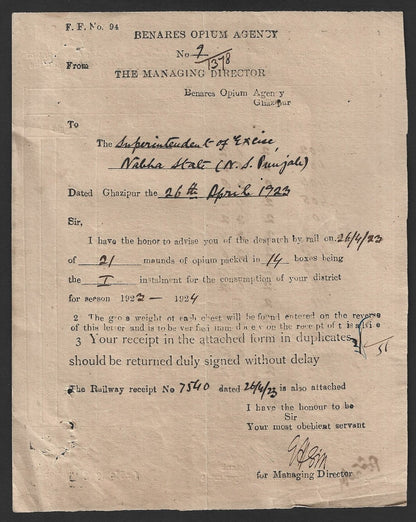 F. F. No. 94
BENARES OPIUM AGENCY
No 9/1378
From
THE MANAGING DIRECTOR
Benares Opium Agency
Ghazipur
To
The Superintendent of Excise,
Nabha State (N. S. Punjab)
Dated Ghazipur the 26th April 1923
Sir,
I have the honor to advise you of the despatch by rail on 26/4/23
of 21 maunds of opium packed in 14 boxes being
the I instalment for the consumption of your district
for season 1923 — 1924
2 The gross weight of each chest will be found entered on the reverse
of this letter and is to be verified immediately on the receipt of
3 Your receipt in the attached form in duplicates
should be returned duly signed without delay
The Railway receipt No 7540 dated 26/4/23 is also attached
I have the honour to be
Sir
Your most obedient servant
for Managing Director